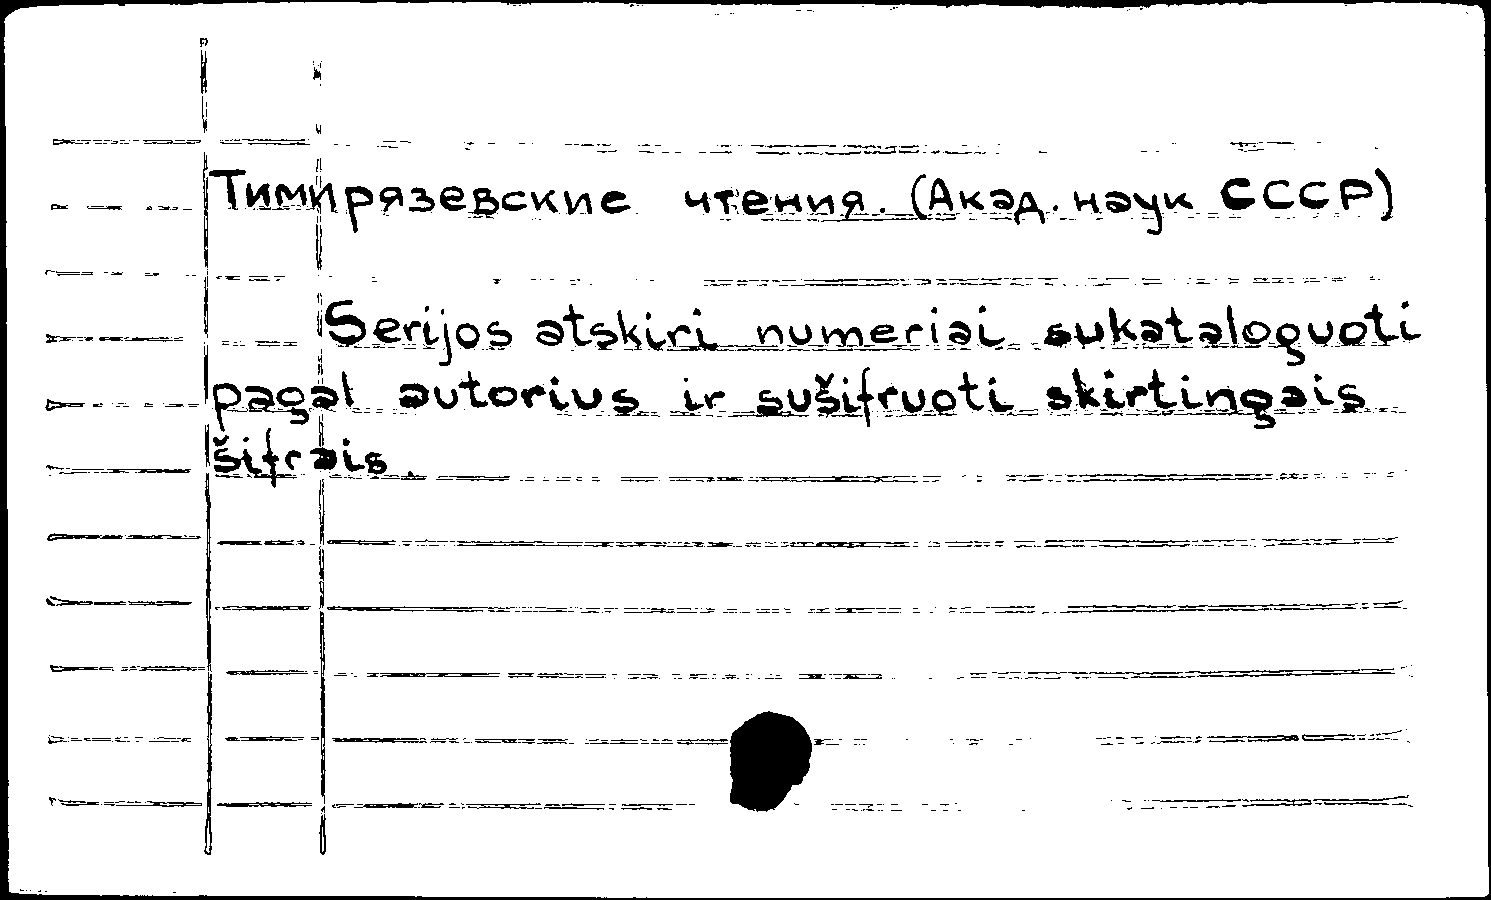 Тимирязевские чтения. (Акад. наук СССР)
Serijos atskiri numeriai sukataloguoti
pagal autorius ir sušifruoti skirtingais
šifrais.